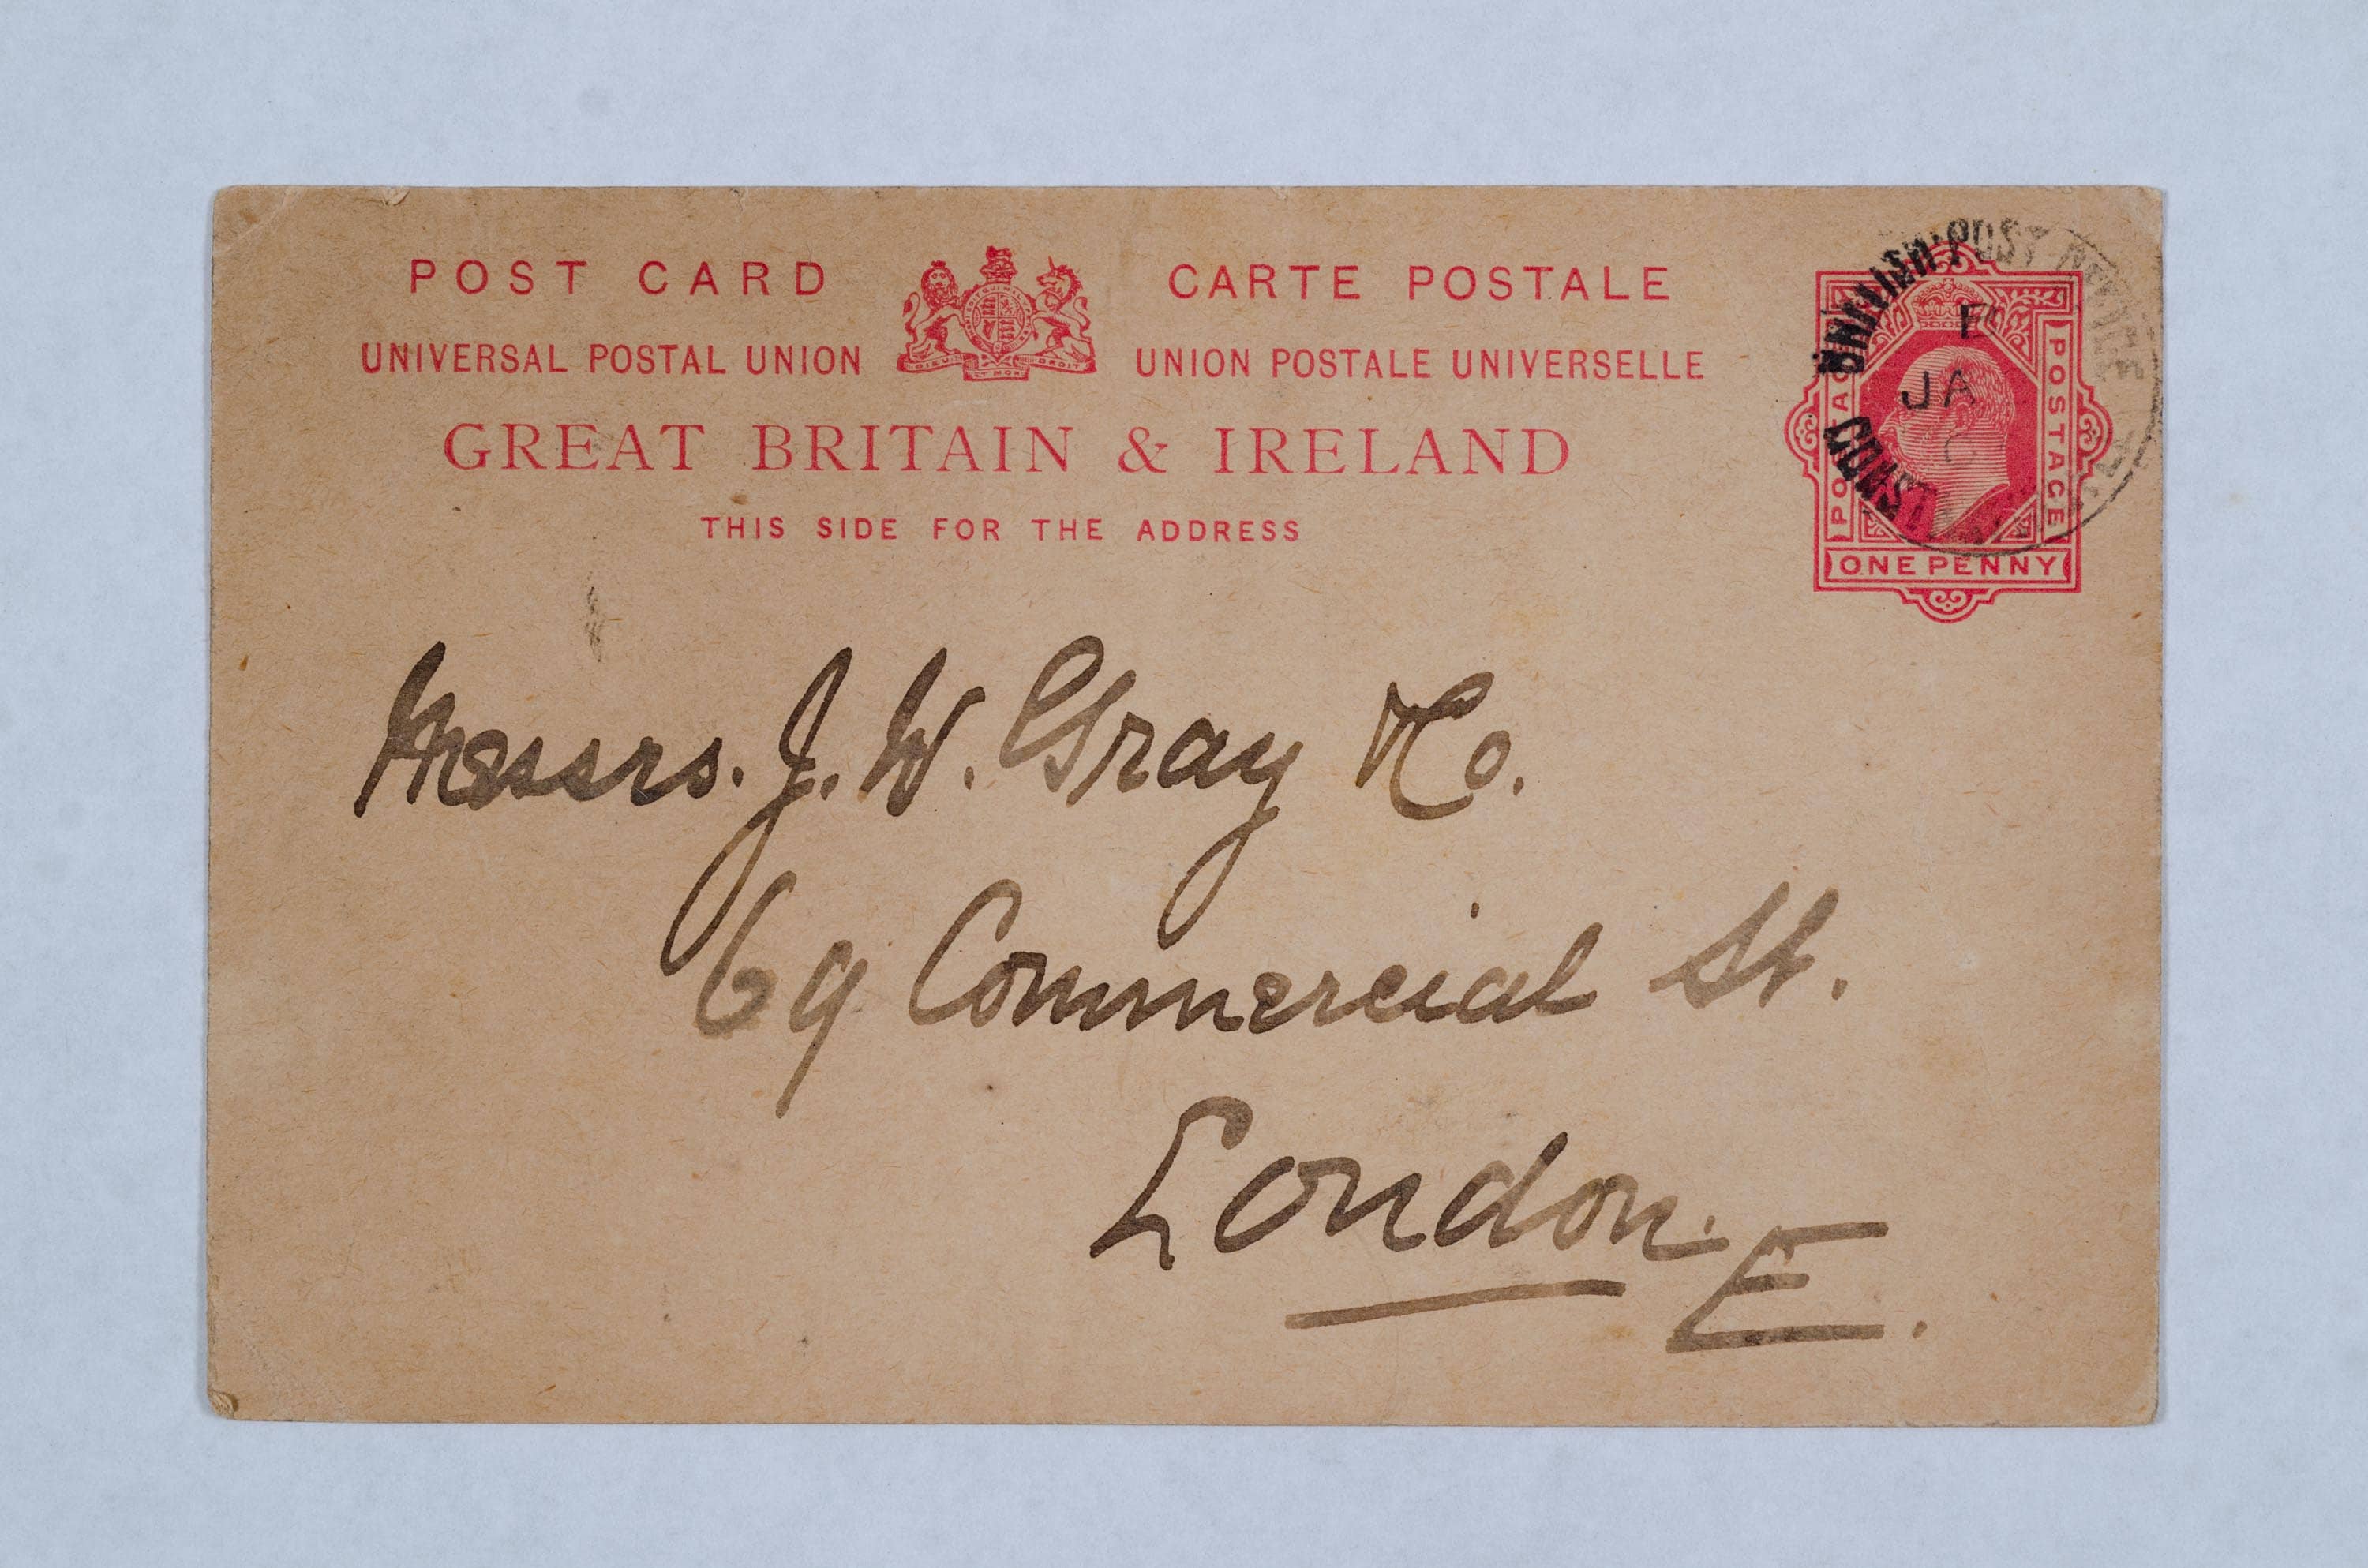 POST CARD
UNIVERSAL POSTAL UNION
CARTE POSTALE
UNION POSTALE UNIVERSELLE
GREAT BRITAIN & IRELAND
THIS SIDE FOR THE ADDRESS
POSTAGE
POSTAGE
ONE PENNY
POST
JA
Messrs. J. W. Gray & Co.
69 Commercial St.
London. E.